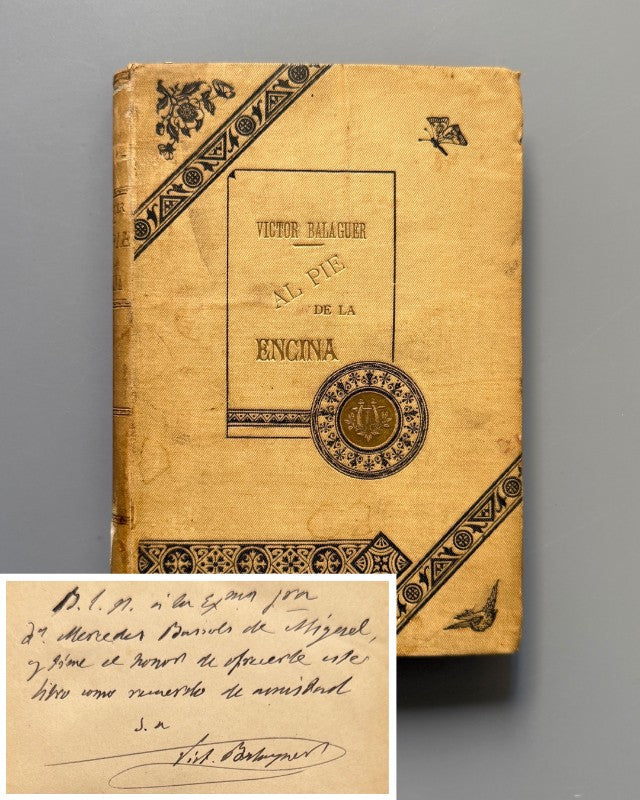 VICTOR BALAGUER
AL PIE
DE LA
ENCINA
B. L. M. á la Exma Sra
Dª Mercedes de Miguel,
y tiene el honor de ofrecerle este
libro como recuerdo de amistad
S. a
Vict. Balaguer